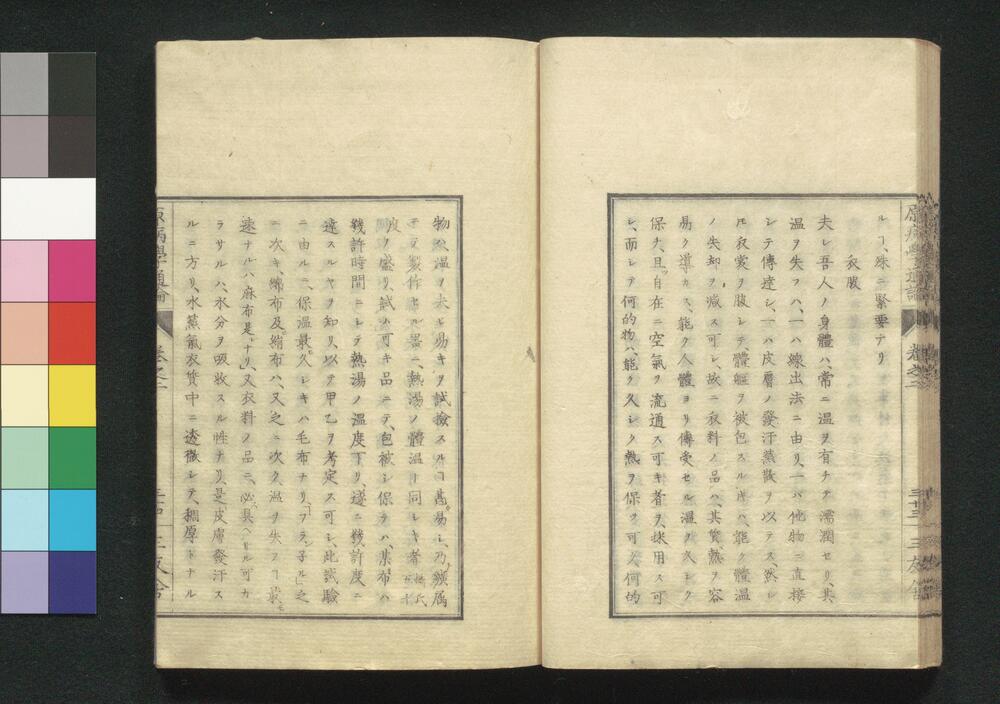 原病學通論 卷之二 三十三 三友舍
ルヿ、殊ニ緊要ナリ
衣服
夫レ吾人ノ身體ハ、常ニ温ヲ有チテ濡潤セリ、其
温ヲ失フハ、一ハ線出法ニ由リ、一ハ他物ニ直接
シテ傳達シ、一ハ皮膚ノ發汗蒸散ヲ以テス、然レ
𪜈衣裳ヲ服シテ體軀ヲ被包スル時ハ、能ク體温
ノ失却ヲ減ス可シ、故ニ衣料ノ品ハ、其質熱ヲ容
易ク導カス、能ク人體ヨリ傳受セル温ヲ久シク
保チ、且自在ニ空氣ヲ流通ス可キ者ヲ採用ス可
シ、而シテ何的物ハ、能ク久シク熱ヲ保ツ可ク何的
物ハ温ヲ失シ易キヲ試撿スルヿ甚易シ、乃鏃属
ニテ製作セル器ニ、熱湯ノ體温ト同シキ者
ヲ盛リ、試ム可キ品ニテ、包被シ保テハ、某布ハ
幾許時間ニシテ熱湯ノ温度下リ、遂ニ幾許度ニ
達スルヤヲ知リ、以テ甲乙ヲ考定ス可シ、此試驗
ニ由ルニ、保温最久シキハ毛布ナリ、「フラ子ル」之
ニ次キ、綿布及絹布ハ、又之ニ次ク、温ヲ失フヿ最
速ナルハ麻布是ナリ、又衣料ノ品ニ、必具ヘサル可カ
ラサルハ、水分ヲ吸收スル性ナリ、是皮膚發汗ス
ルニ方リ、水蒸氣衣質中ニ透徹シテ、稠厚トナル
原病學通論 卷之二 三十四 三友舍